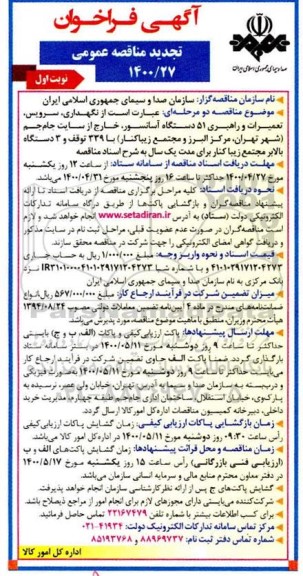 آگهی فراخوان
تجدید مناقصه عمومی
۱۴۰۰/۲۷
نوبت اول
صدا و سیمای جمهوری اسلامی ایران
نام سازمان مناقصه‌گزار: سازمان صدا و سیمای جمهوری اسلامی ایران
موضوع مناقصه دو مرحله‌ای: عبارت است از نگهداری، سرویس،
تعمیرات و راهبری ۵۱ دستگاه آسانسور، خارج از سایت جام‌جم
(شهر تهران، مرکز البرز و مجتمع زیباکنار) با ۳۳۹ توقف و ۳ دستگاه
بالابر مجتمع زیبا کنار برای مدت یک سال به شرح اسناد مناقصه
مهلت دریافت اسناد مناقصه از سامانه ستاد: از ساعت ۱۲ روز یکشنبه
مورخ ۱۴۰۰/۰۴/۲۷ حداکثر تا ساعت ۱۶ روز پنجشنبه مورخ ۱۴۰۰/۰۴/۳۱ می‌باشد.
نحوه دریافت اسناد: کلیه مراحل برگزاری مناقصه از دریافت اسناد تا ارائه
پیشنهاد مناقصه‌گران و بازگشایی پاکت‌ها از طریق درگاه سامانه تدارکات
الکترونیکی دولت (ستاد) به آدرس www.setadiran.ir انجام خواهد شد و لازم
است مناقصه‌گران در صورت عدم عضویت قبلی، مراحل ثبت نام در سایت مذکور
و دریافت گواهی امضای الکترونیکی را جهت شرکت در مناقصه محقق سازند.
قیمت اسناد و نحوه واریز وجه: مبلغ ۱/۰۰۰/۰۰۰ ریال به حساب
بانک مرکزی به نام سازمان صدا و سیمای جمهوری اسلامی ایران
میزان تضمین شرکت در فرآیند ارجاع کار: مبلغ ۵۶۷/۰۰۰/۰۰۰ ریال انواع
مهلت ارسال پیشنهادها: پاکت ارزیابی کیفی و پاکت (الف، ب و ج) بایستی
حداکثر تا ساعت ۹ روز دوشنبه مورخ ۱۴۰۰/۰۵/۱۱ در سامانه ستاد
بارگذاری گردد. ضمنا پاکت الف حاوی تضمین شرکت در فرآیند ارجاع کار
می‌بایست حداکثر تا ساعت ۹ روز دوشنبه مورخ ۱۴۰۰/۰۵/۱۱ بصورت فیزیکی
و دربسته به سازمان به آدرس: تهران، خیابان ولی عصر، نرسیده به
پارک‌وی، خیابان استقلال، ساختمان اداری جام‌جم، طبقه چهارم، مدیریت خرید
داخلی، دبیرخانه کمیسیون مناقصات اداره کل امور کالا ارسال گردد.
زمان بازگشایی پاکات ارزیابی کیفی: زمان گشایش پاکات ارزیابی کیفی
رأس ساعت ۰۹:۳۰ روز دوشنبه مورخ ۱۴۰۰/۰۵/۱۱ در اداره کل امور کالا می‌باشد.
زمان مناقصه و محل قرائت پیشنهادها: زمان گشایش پاکت‌های الف و ب
(ارزیابی فنی بازرگانی) رأس ساعت ۱۵ روز یکشنبه مورخ ۱۴۰۰/۰۵/۱۷
در دفتر معاون محترم منابع مالی و سرمایه انسانی سازمان می‌باشد.
گشایش پاکت‌های ج پس از ارائه نظر کارشناسی سازمان انجام خواهد پذیرفت.
شرکت‌کننده می‌بایستی دارای مجوزهای لازم برای انجام امور از مراجع ذیصلاح باشد.
برای کسب اطلاعات بیشتر با شماره تلفن ۲۲۱۶۷۴۷۹ تماس حاصل فرمائید.
مرکز تماس سامانه تدارکات الکترونیک دولت: ۰۲۱-۴۱۹۳۴
شماره تماس دفتر ثبت نام: ۸۸۹۶۹۷۳۷ و ۸۵۱۹۳۷۶۸
اداره کل امور کالا